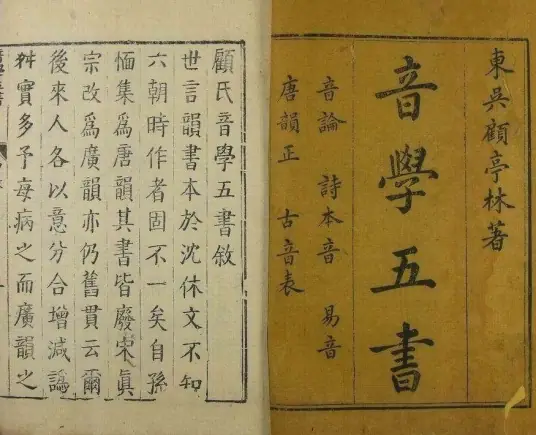 東吳顧亭林著
音學五書
音論 詩本音 易音
唐韻正 古音表
顧氏音學五書敘
世言韻書本於沈休文不知
六朝時作者固不一矣自孫
愐集爲唐韻其書皆廢宋眞
宗改爲廣韻亦仍舊貫云爾
後來人各以意分合增減譌
舛實多予每病之而廣韻之